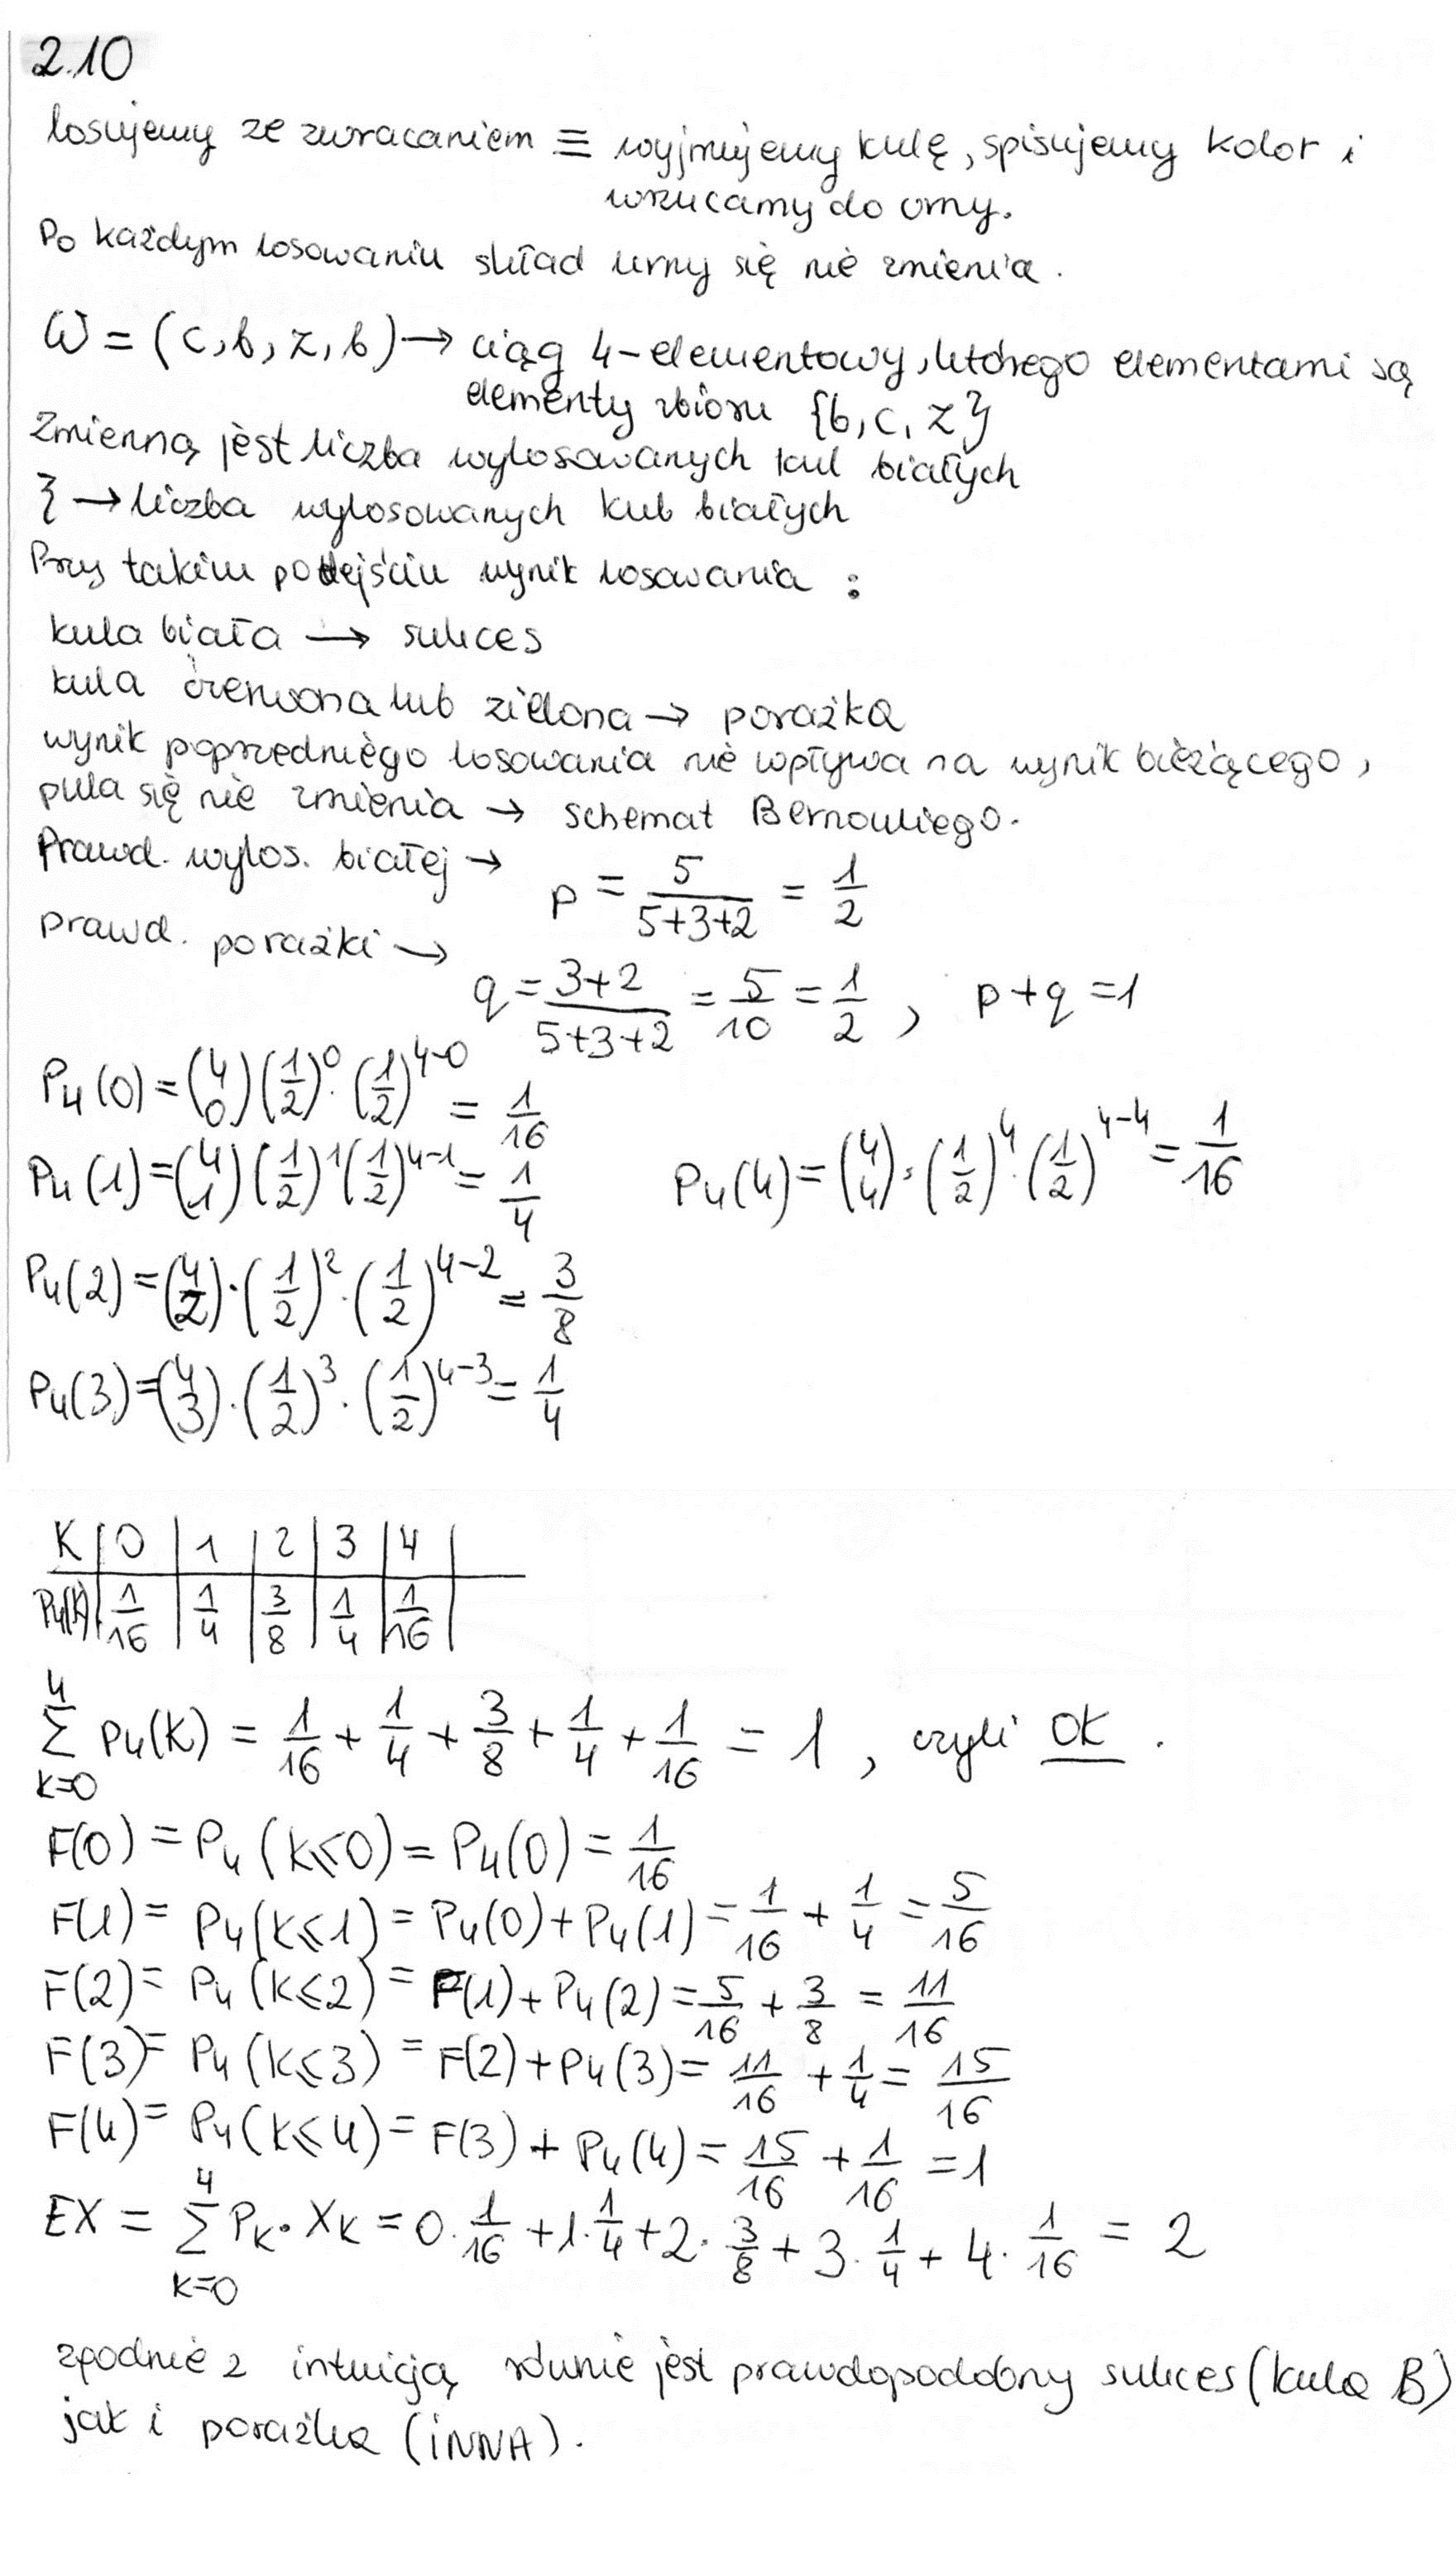 2.10
losujemy ze zwracaniem ≡ wyjmujemy kulę, spisujemy kolor i
wrzucamy do urny.
Po każdym losowaniu skład urny się nie zmienia.
ω = (c, b, z, b) → ciąg 4-elementowy, którego elementami są
elementy zbioru {b, c, z}
Zmienną jest liczba wylosowanych kul białych
ξ → liczba wylosowanych kul białych
Przy takim podejściu wynik losowania :
kula biała → sukces
kula czerwona lub zielona → porażka
wynik poprzedniego losowania nie wpływa na wynik bieżącego,
pula się nie zmienia → schemat Bernouliego.
Prawd. wylos. białej → p = 5/(5+3+2) = 1/2
prawd. porażki → q = (3+2)/(5+3+2) = 5/10 = 1/2 , p+q = 1
P₄(0) = (4 0)(1/2)⁰·(1/2)⁴⁻⁰ = 1/16
P₄(1) = (4 1)(1/2)¹(1/2)⁴⁻¹ = 1/4
P₄(4) = (4 4)·(1/2)⁴·(1/2)⁴⁻⁴ = 1/16
P₄(2) = (4 2)·(1/2)²·(1/2)⁴⁻² = 3/8
P₄(3) = (4 3)·(1/2)³·(1/2)⁴⁻³ = 1/4
K | 0 | 1 | 2 | 3 | 4 |
P₄(K) | 1/16 | 1/4 | 3/8 | 1/4 | 1/16 |
4
Σ P₄(K) = 1/16 + 1/4 + 3/8 + 1/4 + 1/16 = 1 , czyli OK .
K=0
F(0) = P₄(K⩽0) = P₄(0) = 1/16
F(1) = P₄(K⩽1) = P₄(0) + P₄(1) = 1/16 + 1/4 = 5/16
F(2) = P₄(K⩽2) = F(1) + P₄(2) = 5/16 + 3/8 = 11/16
F(3) = P₄(K⩽3) = F(2) + P₄(3) = 11/16 + 1/4 = 15/16
F(4) = P₄(K⩽4) = F(3) + P₄(4) = 15/16 + 1/16 = 1
4
EX = Σ Pₖ·Xₖ = 0·1/16 + 1·1/4 + 2·3/8 + 3·1/4 + 4·1/16 = 2
K=0
zgodnie z intuicją równie jest prawdopodobny sukces (kula B)
jak i porażka (iNNA).